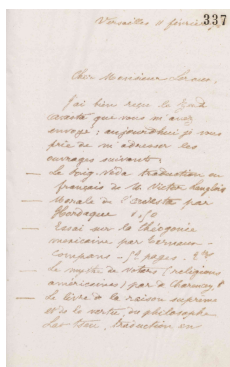 337
Versailles 11 février
Cher Monsieur Leroux,
J'ai bien reçu le Zend
avesta que vous m'avez
envoyé ; aujourd'hui je vous
prie de m'adresser les
ouvrages suivants
le Rig-Véda traduction en
français de Victor Langlois
Morale de l'avesta par
Hovelacque
Essai sur la théogonie
mexicaine par Ternaux-
Compans - pages -
le mythe de Votan (religions
américaines) par de Charencey,
le livre de la raison suprême
et de la vertu, du philosophe
Lao Tseu, traduction en